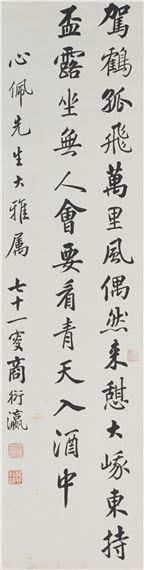 駕鶴孤飛萬里風偶然來憩大峨東持
盃露坐無人會要看青天入酒中
心佩先生大雅屬 七十一叟商衍瀛